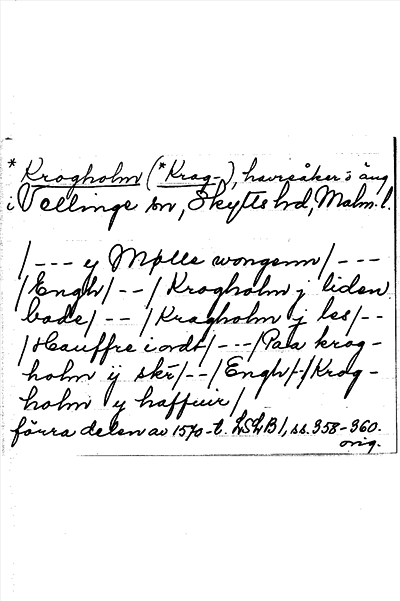 * Krogholm (*Krag-), havreåker o äng
i Vellinge sn, Skytts hd, Malm. l.
/--- y Mølle wongenn/---
/Engh/--/Krogholm j liden
bade/--/Kragholm j les/--
/Hauffre iordt/---/Paa krog-
holm ij skr/--/Engh/-/Krog-
holm y haffuir/
förra delen av 1570-t. LSLB 1, ss. 358-360.
orig.